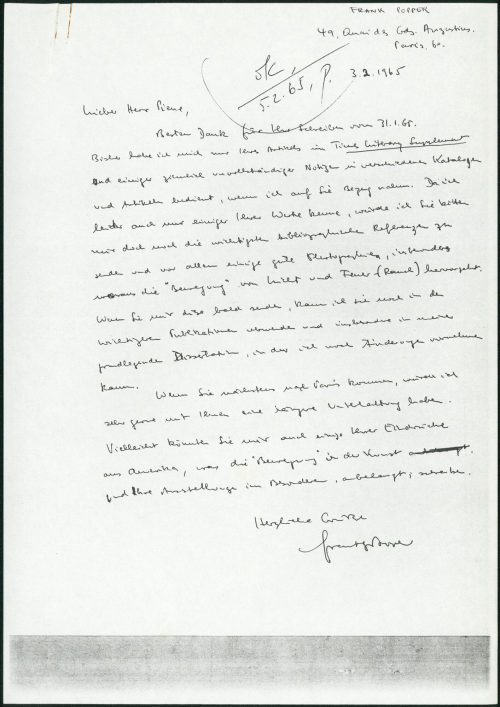 FRANK POPPER
49, Quai des Gds. Augustins.
Paris. 6e.
ok,
5.2.65, P.
3.2.1965
Lieber Herr Piene,
Besten Dank für Ihr Schreiben vom 31.1.65.
Bisher habe ich mich nur Ihres Artikels in Times Literary Supplement
und einiger ziemlich unvollständiger Notizen in verschiedenen Katalogen
und Artikeln bedient, wenn ich auf Sie Bezug nahm. Da ich
leider auch nur einige Ihrer Werke kenne, würde ich Sie bitten
mir doch noch die wichtigsten bibliographischen Referenzen zu
senden und vor allem einige gute Photographien, insbesondere
woraus die "Bewegung" von Licht und Feuer (Rauch) hervorgeht.
Wenn Sie mir diese bald senden, kann ich sie noch in den
wichtigen Publikationen verwenden und insbesondere in meiner
grundlegenden Dissertation, in der ich noch Änderungen vornehmen
kann.
Wenn Sie nächstens nach Paris kommen, würde ich
sehr gerne mit Ihnen eine längere Unterhaltung haben.
Vielleicht könnten Sie mir auch einige Ihrer Eindrücke
aus Amerika, was die "Bewegung" in der Kunst
und Ihre Ausstellungen im Besonderen, anbelangt, schreiben.
Herzliche Grüsse
Frank Popper